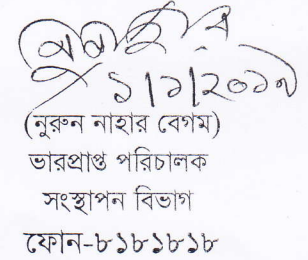 ১/১/২০১৯
(নুরুন নাহার বেগম)
ভারপ্রাপ্ত পরিচালক
সংস্থাপন বিভাগ
ফোন-৮১৮১৮১৮